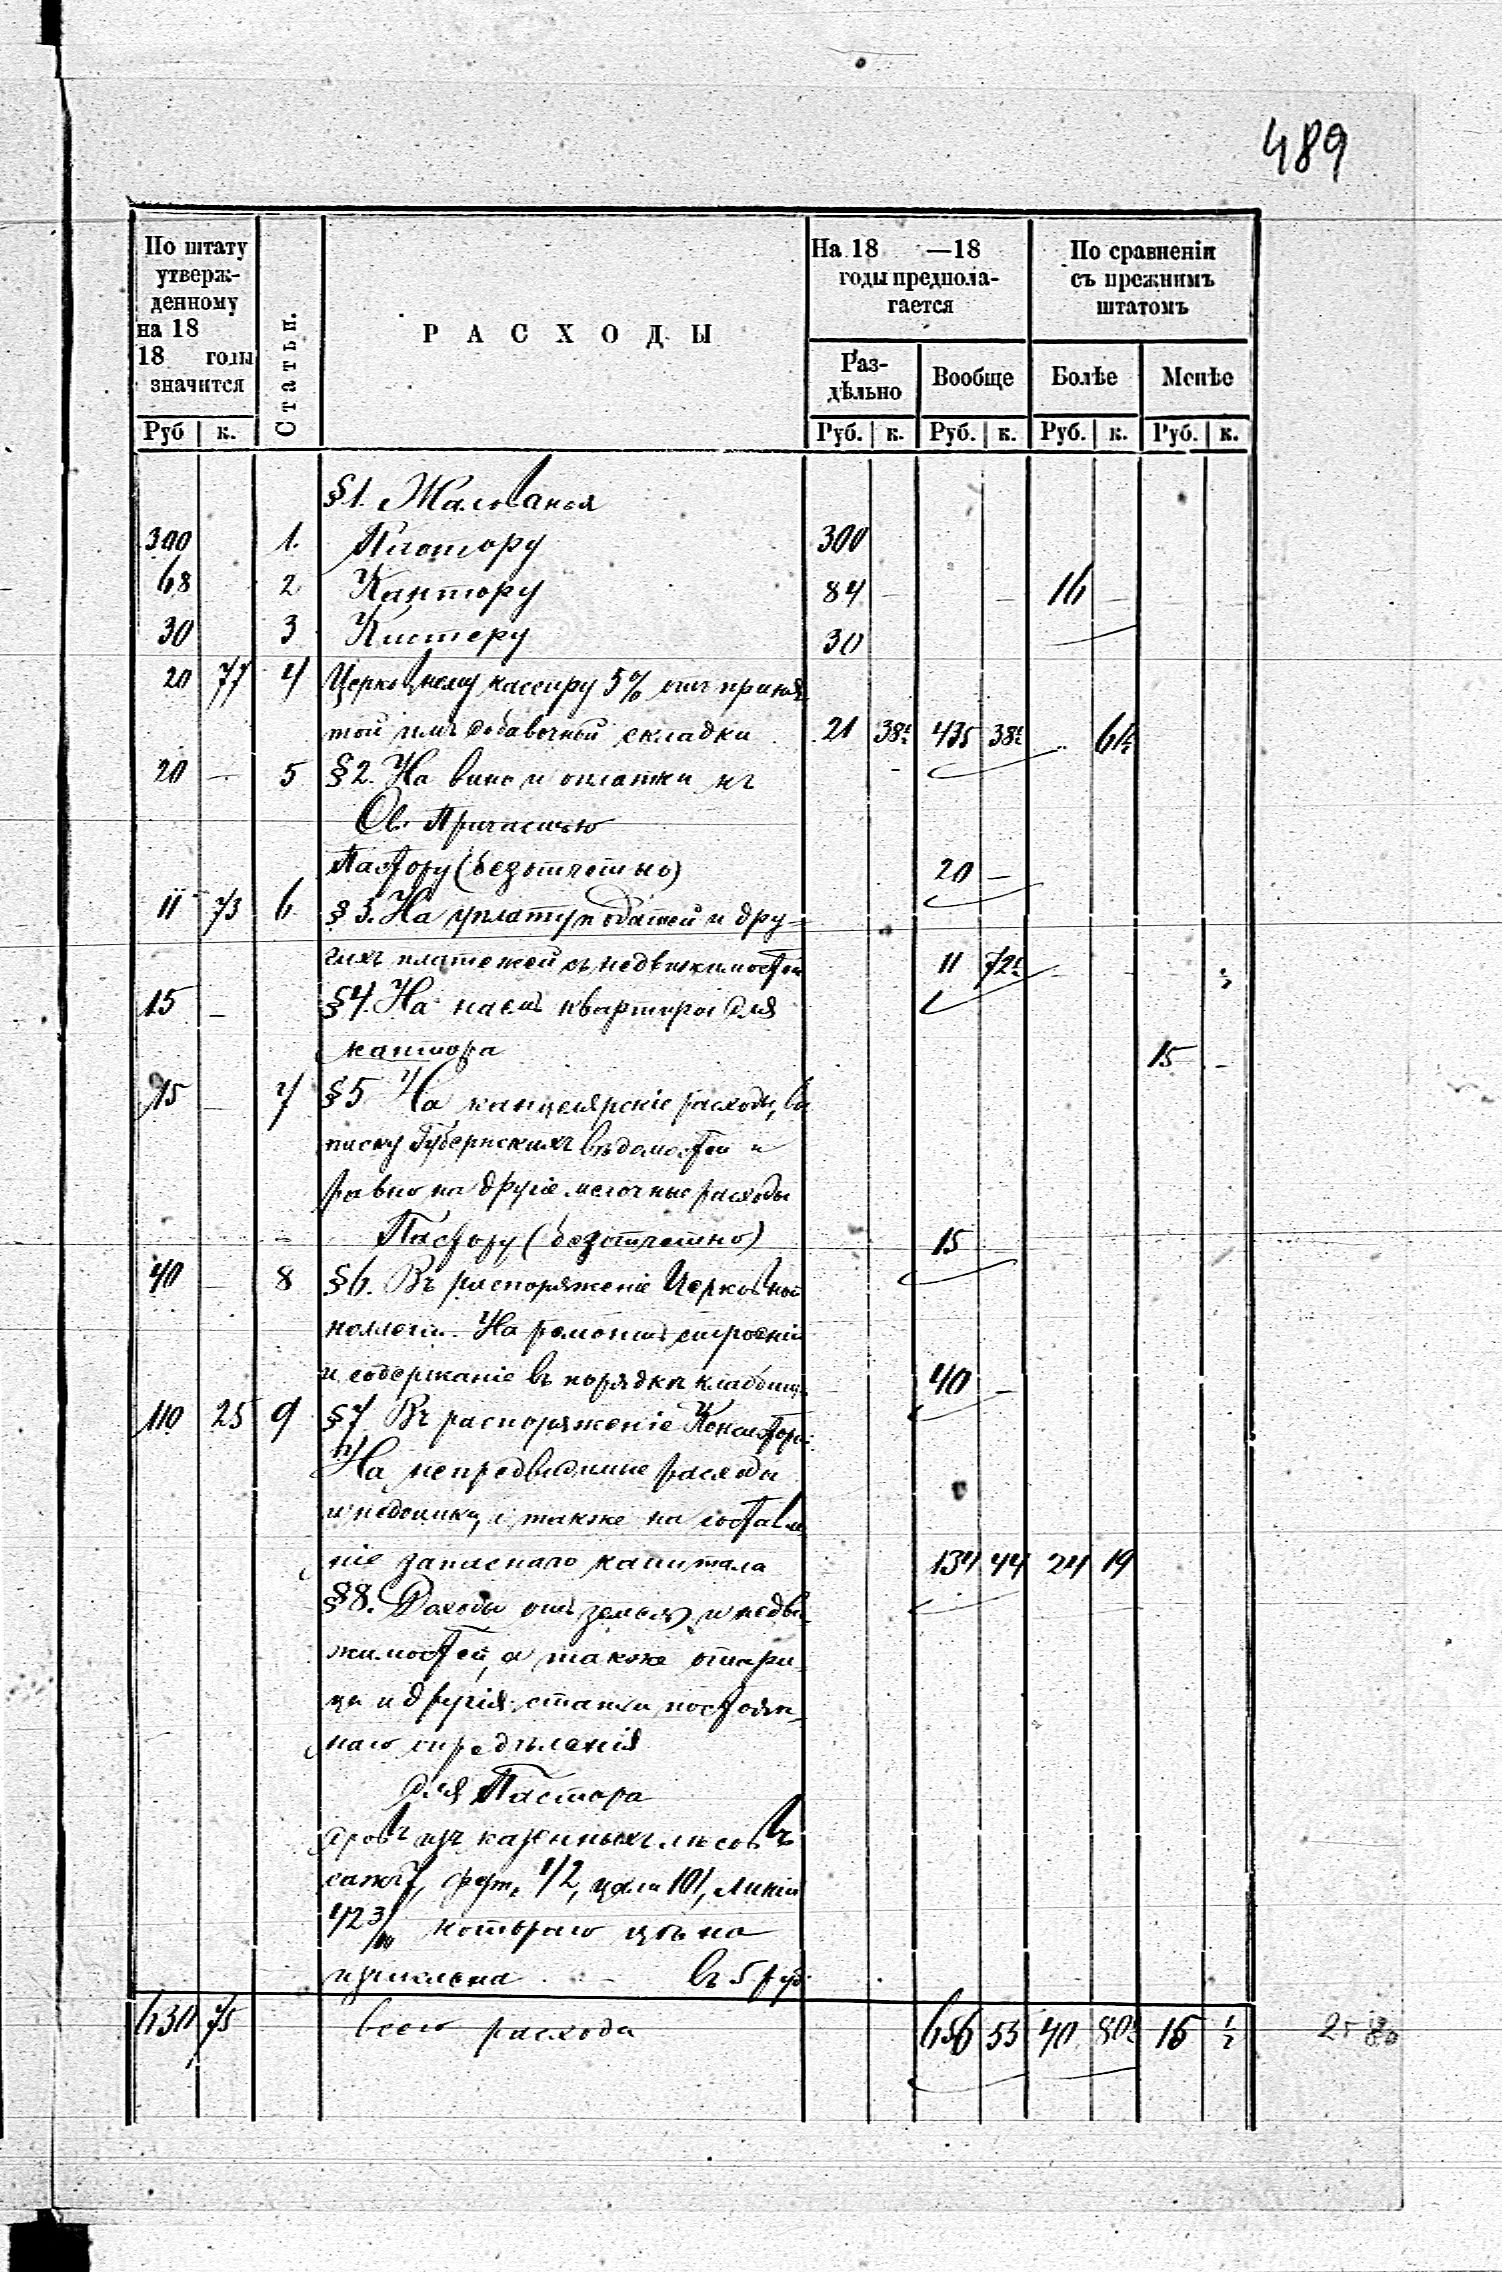 489
По штату утвержденному на 18 18 годы значится
Статьи.
РАСХОДЫ
На 18 —18 годы предполагается
По сравненію съ прежнимъ штатомъ
Раздѣльно Вообще Болѣе Менѣе
Руб к. Руб. к. Руб. к. Руб. к. Руб. к.
§1. Жалованья
300 1. Пастору 300
68 2 Кантору 84 — — 16 —
30 3 Кистеру 30
20 77 4 Церковному кассиру 5% отъ приня
той имъ добавочной складки 21 38½ 435 38½ 61½
20 — 5 §2. На вино и оплатки къ
Св. Причастью
Пастору (безотчетно) 20 —
11 73 6 §3. На уплату податей и дру-
гихъ платежей съ недвижимостей 11 72½ ½
15 — §4. На наемъ квартиры для
кантора 15 —
15 — 7 §5 На канцелярскіе расходы, вы
писку Губернскихъ вѣдомостей и
равно на другіе мелочные расходы
Пастору (безотчетно) 15 —
40 — 8 §6. Въ распоряженіе Церковной
коллегіи. На ремонтъ строеній
и содержаніе въ порядкѣ кладбища 40 —
110 25 9 §7 Въ распоряженіе Консисторіи
На непредвидимые расходы
и недоимку, а также на составле
ніе запаснаго капитала 134 44 24 19
§8. Доходы отъ земель и недви-
жимостей, а также
и другія статьи постоян-
наго опредѣленія
для Пастора
дровъ изъ казенныхъ лѣсовъ
саж. 7, фут. 1/2, линій
котораго цѣна
исчислена въ 5 руб.
630 75 всего расхода 656 55 40 80½ 15 ½
25 80